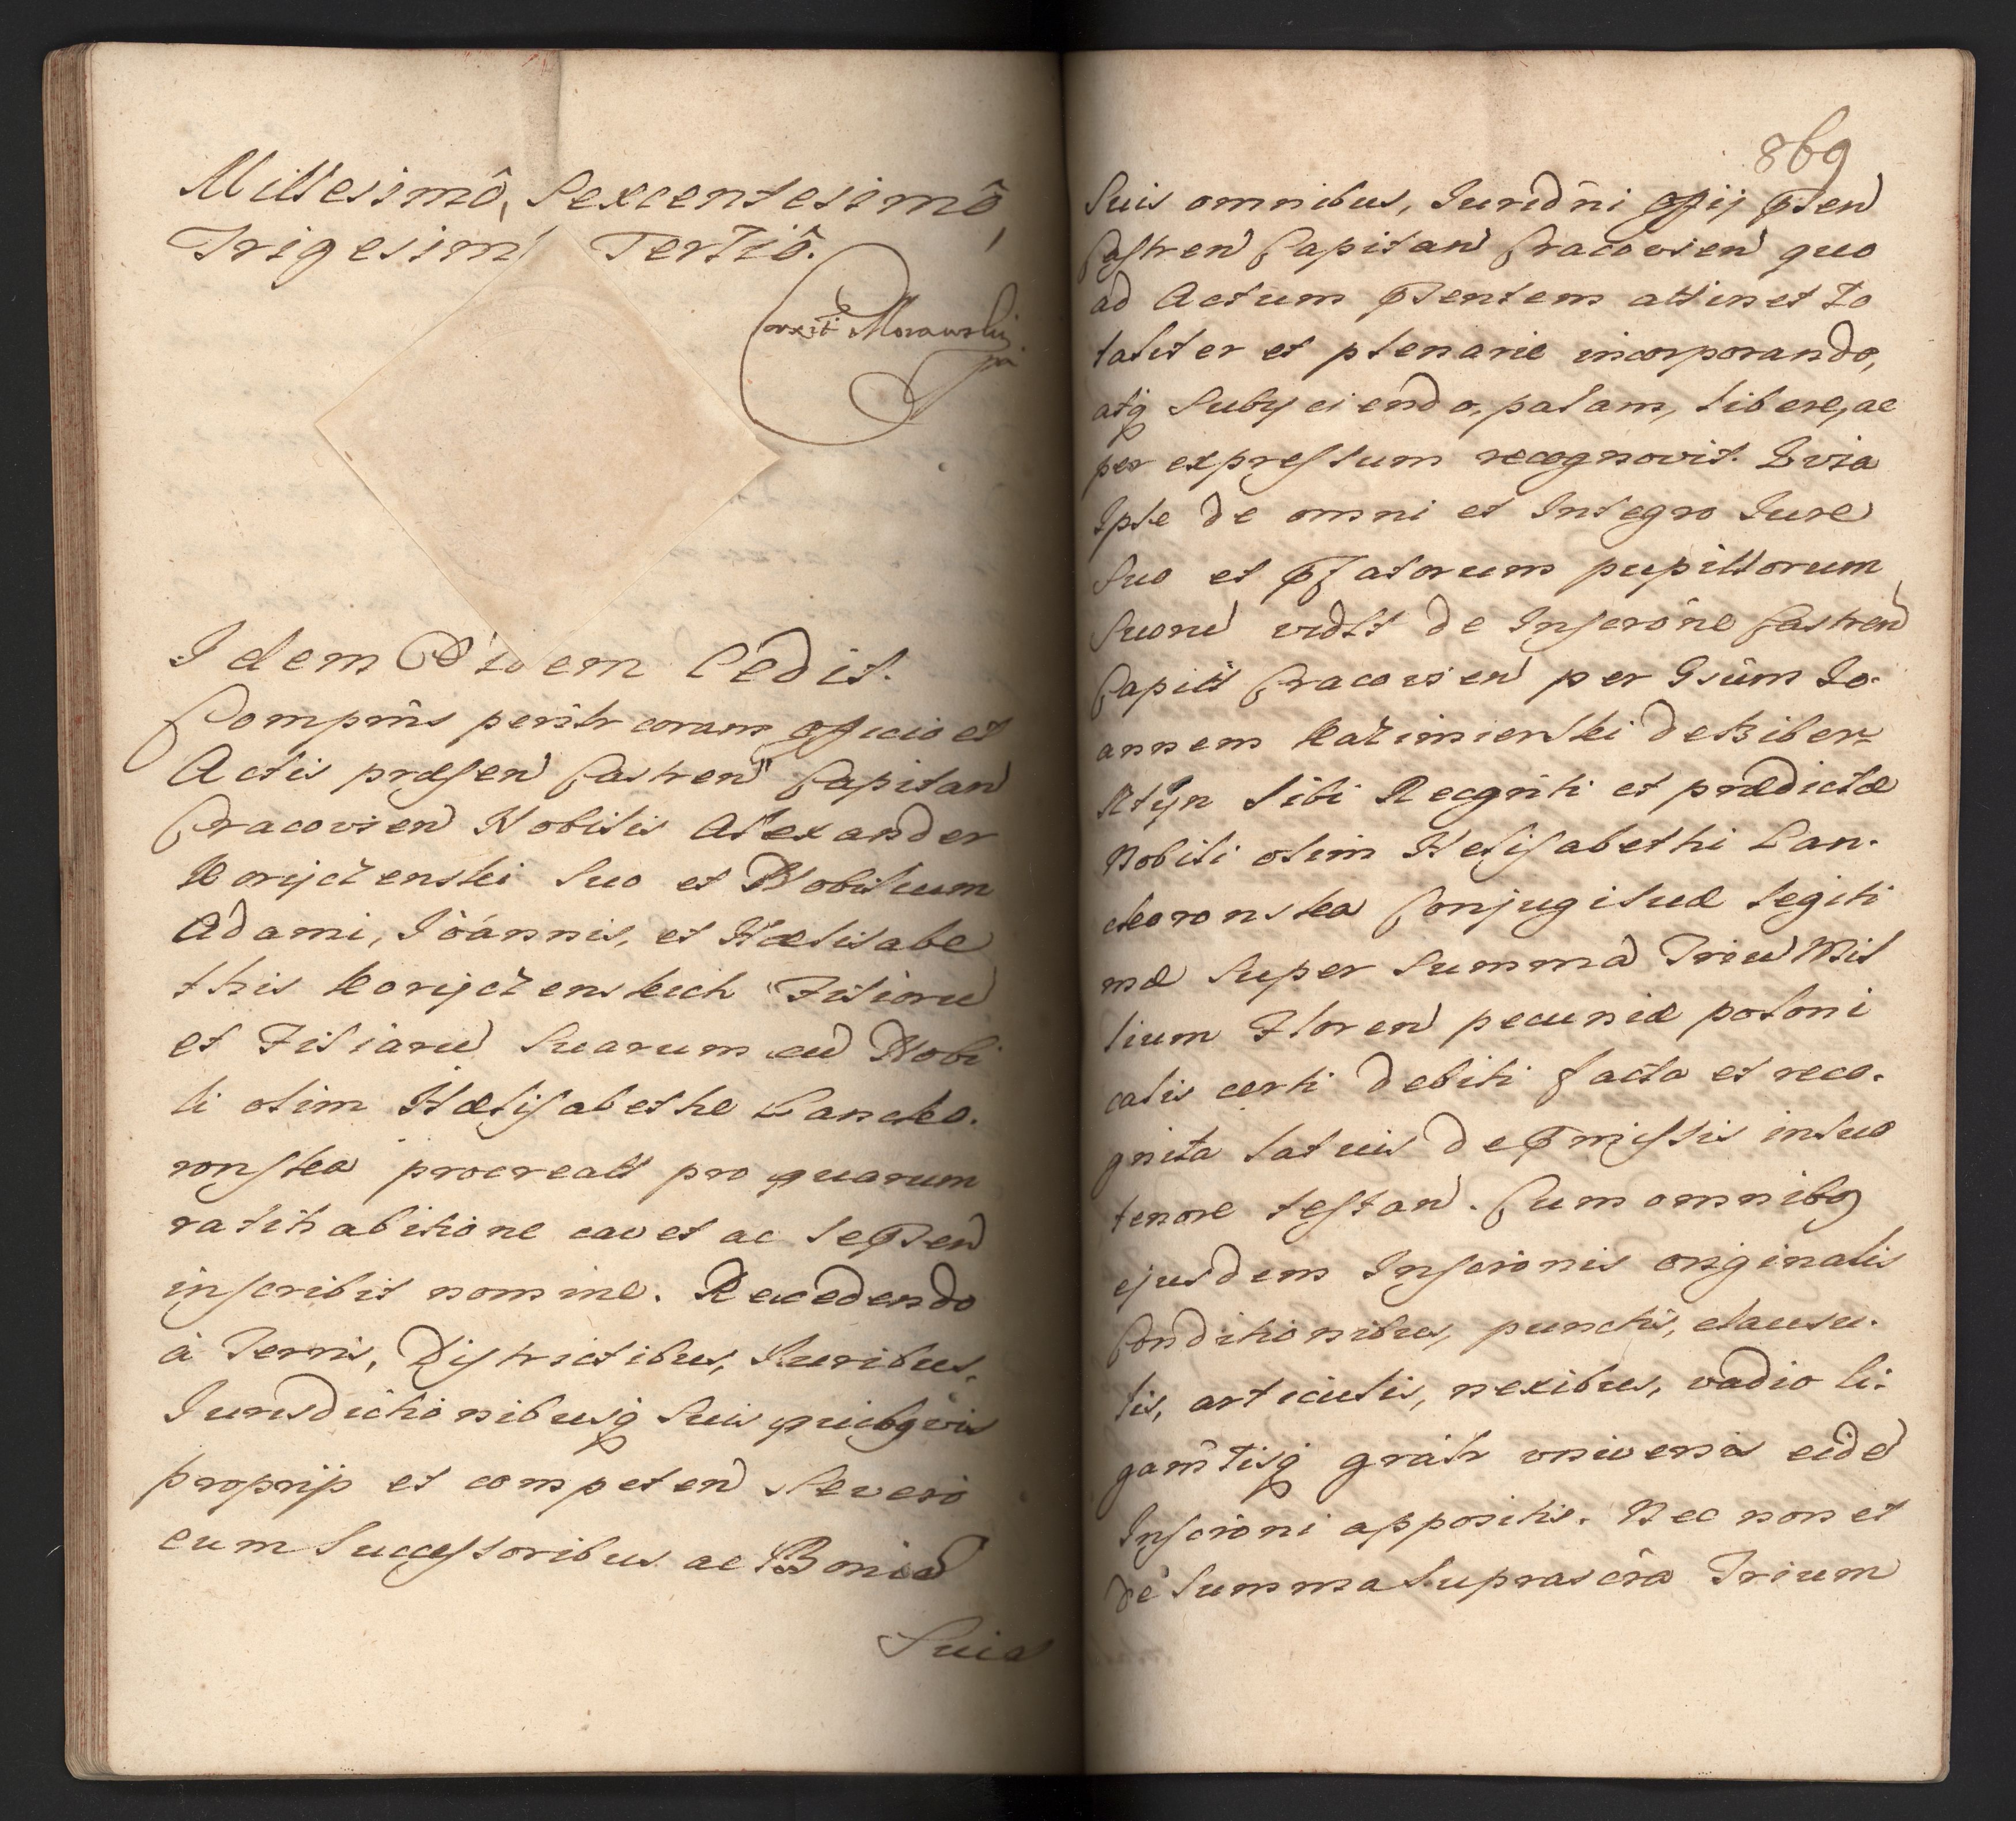 Millesimô, Sexcentesimô,
Trigesim Tertiô.
Correxit Morawski
Idem Eidem Cedit.
Comprñs persñtr coram officio et
Actis præsen Castren Capitan
Cracovien Nobilis Alexander
Korijczenski Suo et Nobilium
Adami, Joánnis, et Hælisabe
this Korijczenskich Filioru
et Filiaru Suarum cu Nobi
li olim Hælisabethe Lancko.
ronska procreatt pro quarum
ratihabitione cavet ac se pnden
inscribit nomine. Recedendo
à Terris, Districtibus, Iuribus,
Iurisdictionibusq Suis quibqvis
proprijs et competen Se vero
cum Successoribus ac Bonis
Suis
869
Suis omnibus, Iurisdñi Offij pnten
Castren Capitan Cracovien quo
ad Actum pntentem attinet to
taliter et plenarie incorporando,
atq Subijciendo, palam, libere, ac
per expressum recognovit. Quia
Ipse de omni et Integro Iure
Suo et pfatorum pupillorum
Suoru vidlt de Inscrōne Castren
Capitt Cracovien per Gsûm Io.
annem Kazimierski de Biber=
sztijn Sibi Recognti et prædictæ
Nobili olim Helisabethi Lan.
ckoronska Conjugi Suæ legiti
mæ Super Summa Triu Mil
lium Floren pecuniæ poloni
calis certi debiti facta et reco.
gnita latius de pmissis in suo
tenore testan. Cum omnibq
ejusdem Inscrōnis originalis
Conditionibus, punctis, clausu.
lis, articulis, nexibus, vadio li:
gamtisq grâtr universis eide
Inscrōni appositis. Nec non et
de Summa Suprascrâ Trium